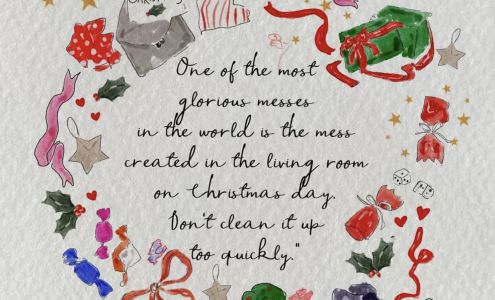 One of the most
glorious messes
in the world is the mess
created in the living room
on Christmas day.
Don't clean it up
too quickly."